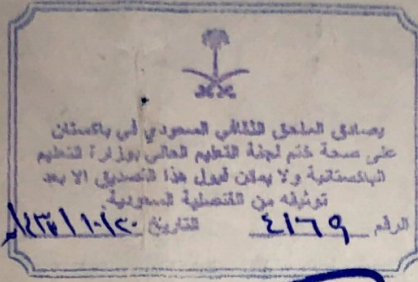 يصادق الملحق الثقافي السعودي في باكستان
على صحة ختم لجنة التعليم العالي بوزارة التعليم
الباكستانية ولا يمكن قبول هذا التصديق الا بعد
توثيقه من القنصلية السعودية
الرقم ٤١٦٩ التاريخ